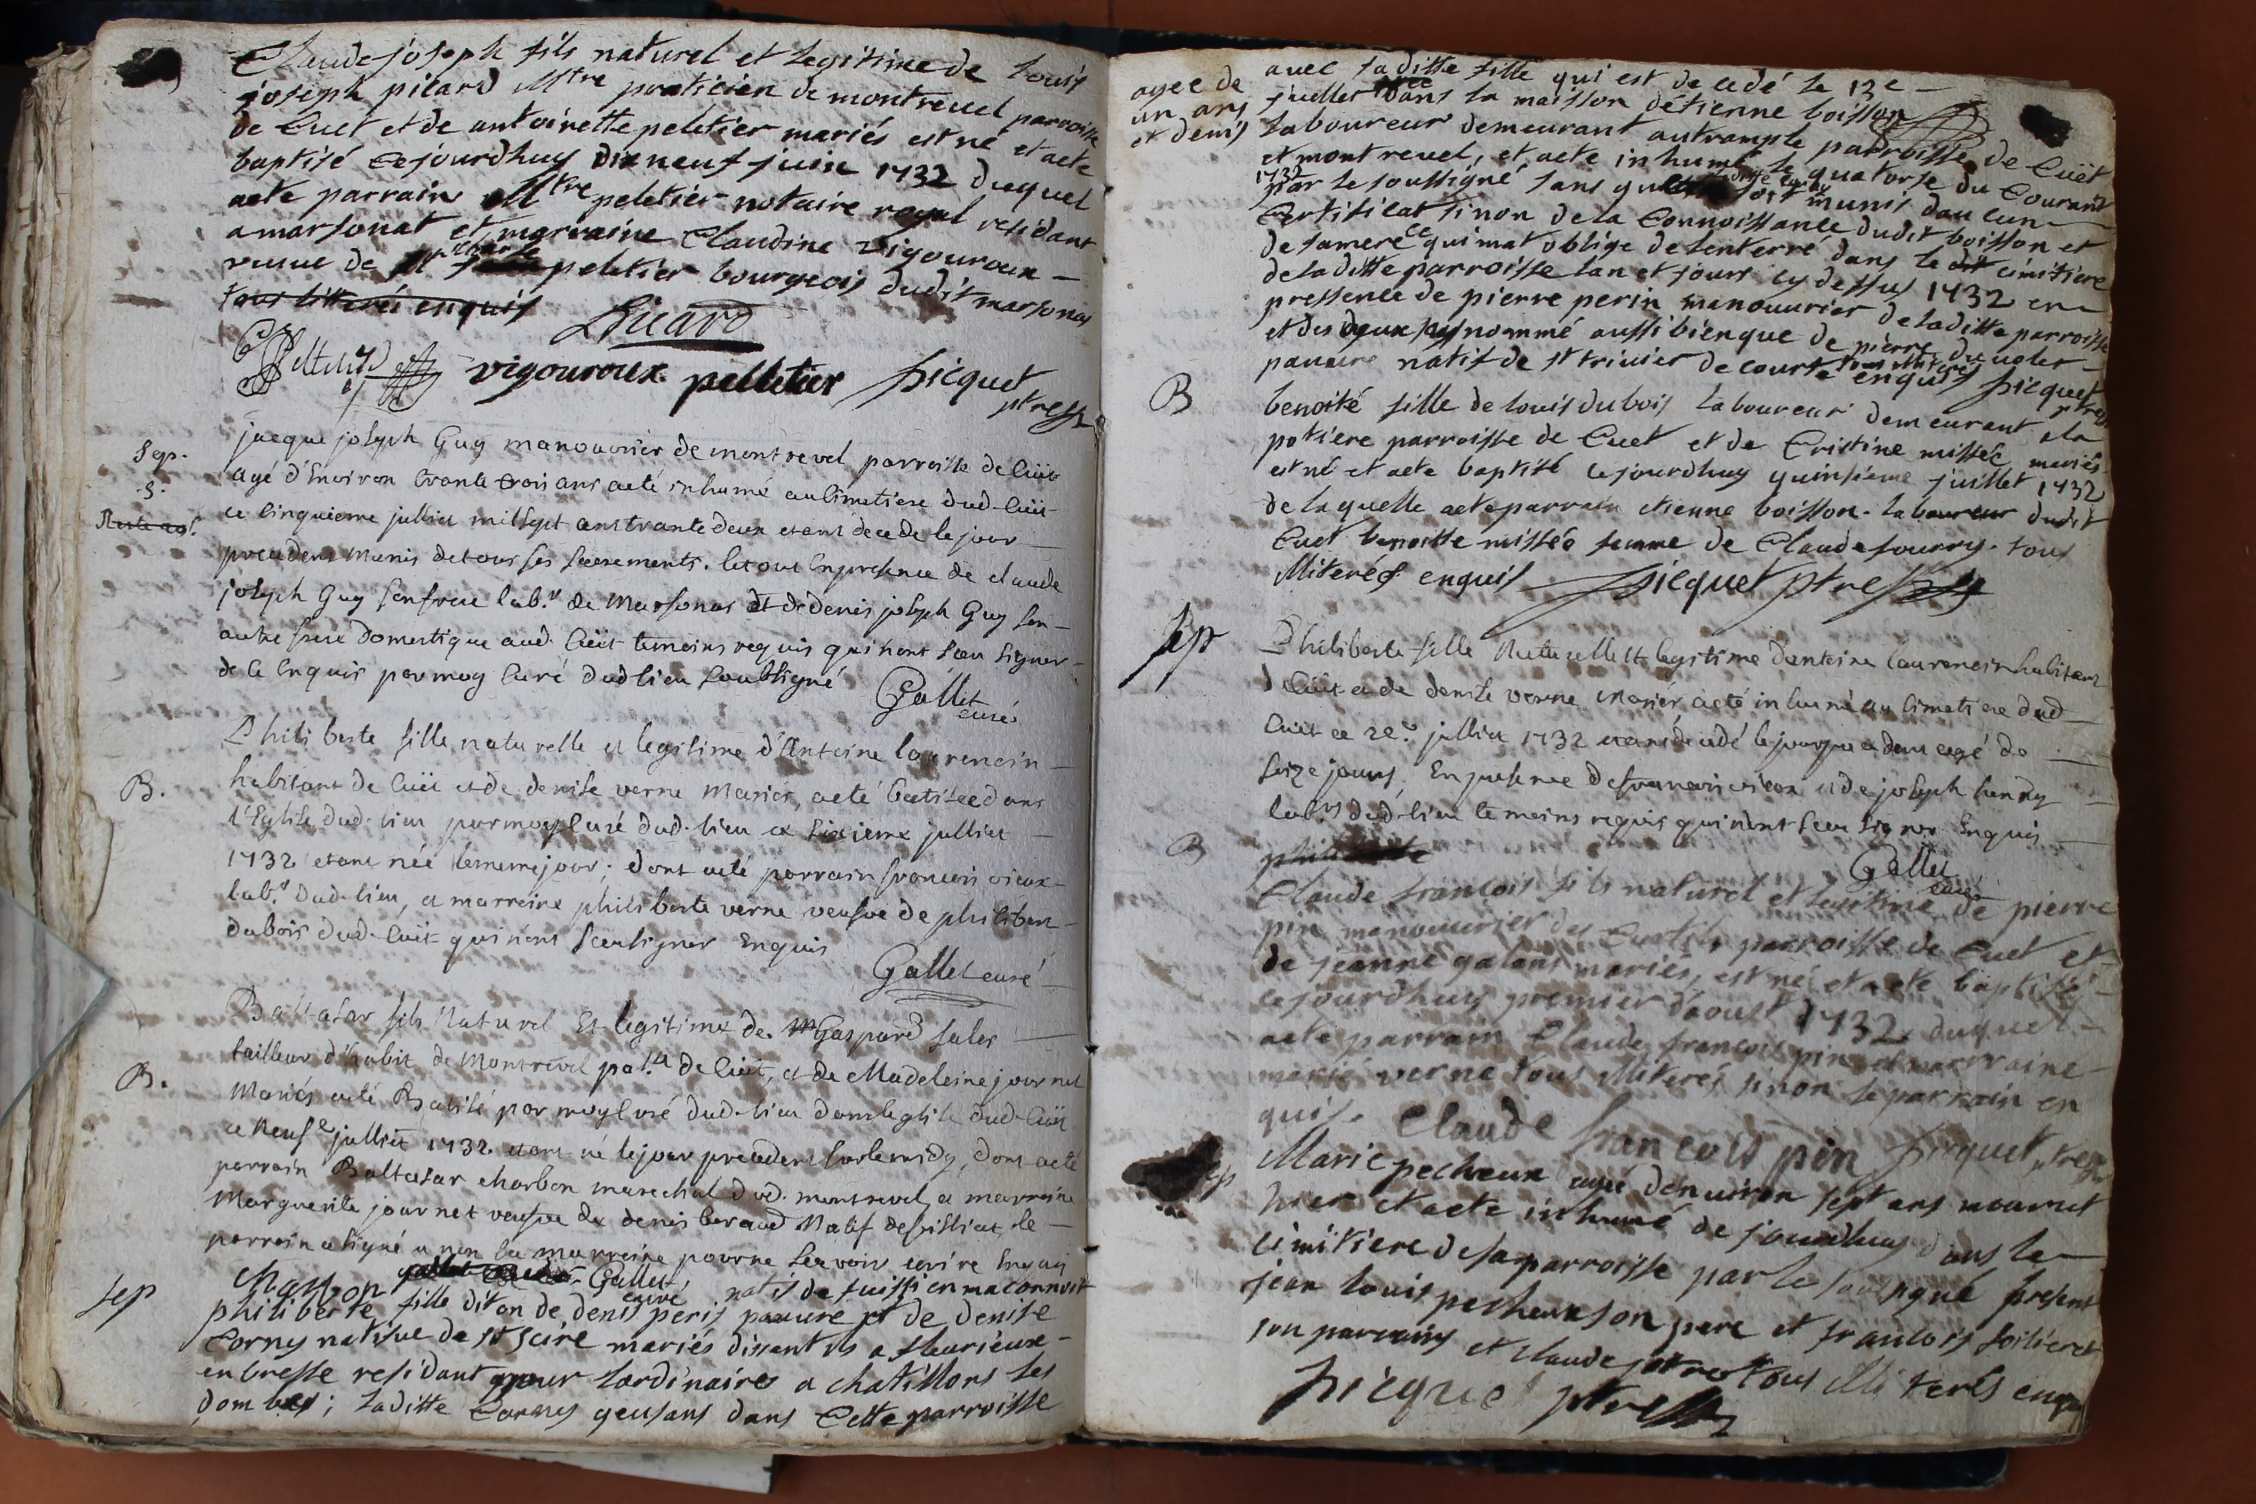 Claude joseph fils naturel et legitime de louis
joseph picard Mtre praticien de montrevel parroisse
de Cuet et de antoinette peletier mariés est né et aete
baptisé cejourdhuy dix neuf juin 1732 duquel
aete parrain Mtre peletier notaire royal residant
a marsonat et marraine Claudine vigouroux
veuve de peletier bourgeois dudit marsonas
tous litterés enquis
Picard
vigouroux pelletier picquet
ptre
Sep.
jacque joseph Guy manouvrier de montrevel parroisse de Cüet
agé d'Environ trante trois ans aeté inhumé au Cimetiere dud. Cüit
ce Cinquieme julliet mil sept cens trante deux etant decede le jour
precedent Munis de tous ses sacrements. le tout En presence de claude
joseph Guy son frere lab.r de Marsonas et de denis joseph Guy son
autre frere domestique aud. Cüit temoins requis qui n'ont sceu signer
de ce Enquis par moy Curé dud lieu soubsigné
Gallet
curé
Philiberte fille naturelle et legitime d'Antoine laurencin
B.
habitant de Cüit et de denise verne Mariés, aeté batisée dans
l'Eglise dud. lieu par moy Curé dud. lieu ce sixieme julliet
1732 etant née le meme jour; dont aeté parrain francois vieux
lab.r dud. lieu, et marreine philiberte verne veufve de philibert
dubois dud. Cüit qui n'ont sceu signer Enquis
Gallet curé
Baltasar fils Naturel Et legitime de Mre Gaspard sales
tailleur d'habit de Montrevel de Cüit, et de Madeleine journet
B.
Mariés aeté Batisé par moy Curé dud. lieu dans l'eglise dud. Cüit
ce neuf e julliet 1732 etant né le jour precedent sur le midy, dont aeté
parrain Baltasar charbon marechal dud. montrevel, et marreine
Marguerite journet veufve de denis beraud Natif de le
parrein a signé et non la marreine pour ne scavoir ecrire Enquis
Charbon Gallet
curé
sep
philiberte fille dit on de denis peris pauvre natif de et de denise
Corny native de st mariés dissent ils a fleurieux
en bresse residant pour lordinaires a chatillons les
dombes; laditte Corny geusans dans Cette parroisse
agee de
un ans
et demis
avec laditte fille qui est decedé le 13e
juellet dans la maisson detienne boisson
laboureur demeurant autrample parroisse de Cuët
et montrevel, et aete inhumé le quatorse du Courant
1732
par le soussigné sans que soit munis daucun
Certificat sinon de la Connoissance dudit boisson et
de samere ce qui mat oblige de lenterré dans le cimitiere
de laditte parroisse lan et jours cy dessus 1732 en
pressence de pierre perin manouvrier de laditte parroisse
et des deux nommé aussi bien que de pierre
pauvre natif de st trivier de courte enquis picquet
ptre
B
benoité fille de louis dubois laboureur demeurant a la
potiere parroisse de Cuet et de Cristine missée mariés
est né et aete baptisé cejourdhuy quinsieme juillet 1732
de laquelle aete parrain etienne boisson laboureur dudit
Cuet benoitte missée femme de Claude fourry tous
illiterés enquis picquet ptre
sep
Philiberte fille Naturelle et legitime d'antoine laurencin habitant
de Cüit et de denise verne Mariés aeté inhumé au Cimetiere dud
Cüit ce 22e julliet 1732 etant decedé le jour precedent agé de
seize jours. En presence de francois vieux et de joseph
lab.rs dud. lieu temoins requis qui n'ont sceu signer Enquis
Gallet
curé
B
Claude francois fils naturel et legitime de pierre
pin manouvrier des parroisse de Cuet et
de jeanne galans mariés, est né et aete baptisé
cejourdhuy premier d'aoust 1732 duquel
aete parrain Claude francois pin et marraine
marie verne tous illiterés sinon le parrain en
quis. Claude francois pin picquet ptre
sep
Marie pecheux agé denviron sept ans mourut
hier et aete inhumé ce jourdhuy dans le
cimitiere de sa parroisse par le soussigné present
jean louis pecheux son pere et francois
son parrain et claude tous illiterés enquis
picquet ptre